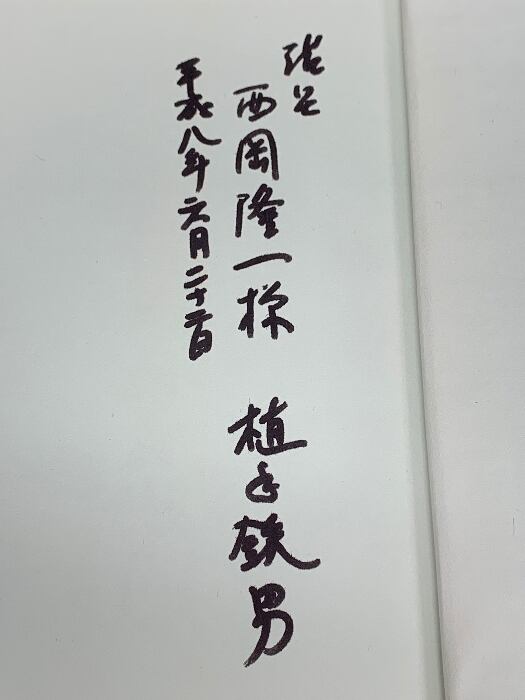 謹呈
西岡隆一様 植手鉄男
平成八年六月二十二日